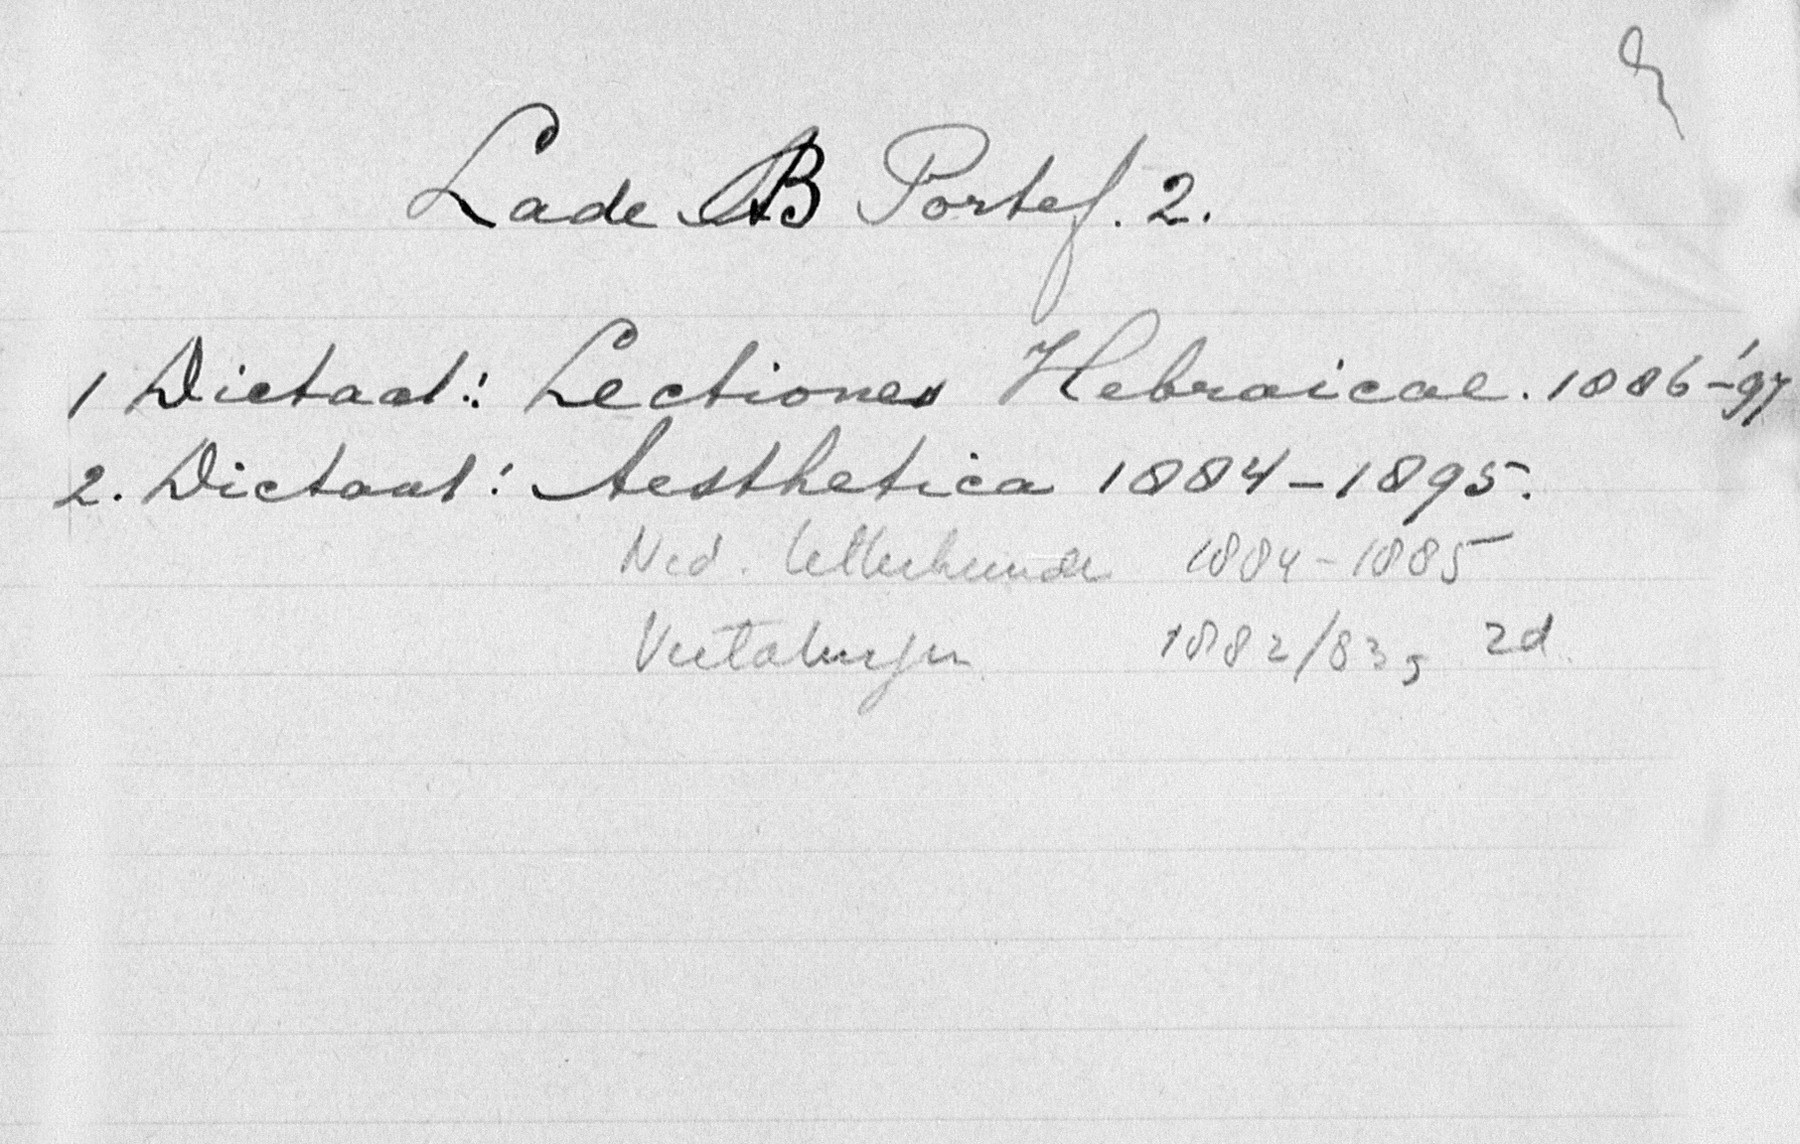 Lade AB Portef. 2.
1 Dictaat: Lectiones Hebraicae. 1886-'97
2. Dictaat: Aesthetica 1884-1895.
Ned. letterkunde 1884-1885
Vertalingen 1882/83, 2d.